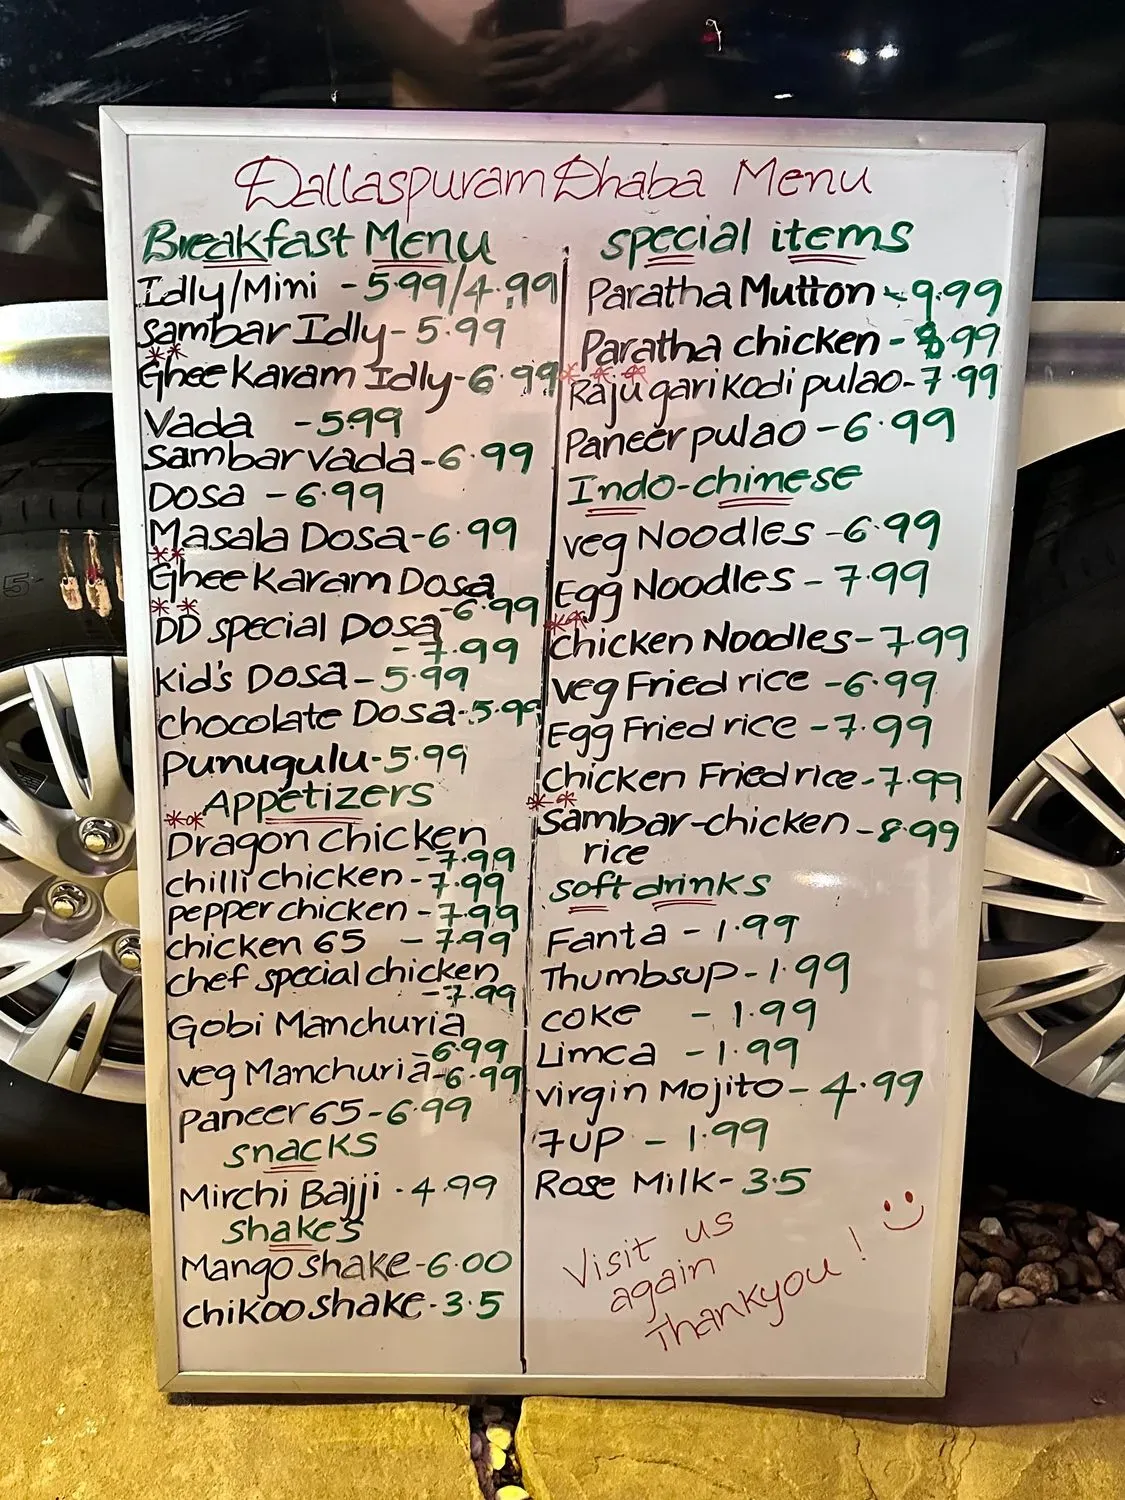 Dallaspuram Dhaba Menu
Breakfast Menu
Idly/Mini - 5.99/4.99
Sambar Idly - 5.99
**
Ghee Karam Idly - 6.99
Vada - 5.99
Sambar vada - 6.99
Dosa - 6.99
Masala Dosa - 6.99
**
Ghee Karam Dosa
- 6.99
**
DD special Dosa
- 7.99
Kid's Dosa - 5.99
chocolate Dosa - 5.99
Punugulu - 5.99
Appetizers
**
Dragon chicken
- 7.99
chilli chicken - 7.99
pepper chicken - 7.99
chicken 65 - 7.99
chef special chicken
- 7.99
Gobi Manchuria
- 6.99
veg Manchuria - 6.99
Paneer 65 - 6.99
snacks
Mirchi Bajji - 4.99
shakes
Mango shake - 6.00
chikoo shake - 3.5
special items
Paratha Mutton - 9.99
Paratha chicken - 8.99
***
Raju gari Kodi pulao - 7.99
Paneer pulao - 6.99
Indo-chinese
veg Noodles - 6.99
Egg Noodles - 7.99
**
chicken Noodles - 7.99
veg Fried rice - 6.99
Egg Fried rice - 7.99
chicken Fried rice - 7.99
**
Sambar-chicken - 8.99
rice
soft drinks
Fanta - 1.99
Thumbsup - 1.99
coke - 1.99
Limca - 1.99
virgin Mojito - 4.99
7up - 1.99
Rose Milk - 3.5
Visit us
again
Thankyou !